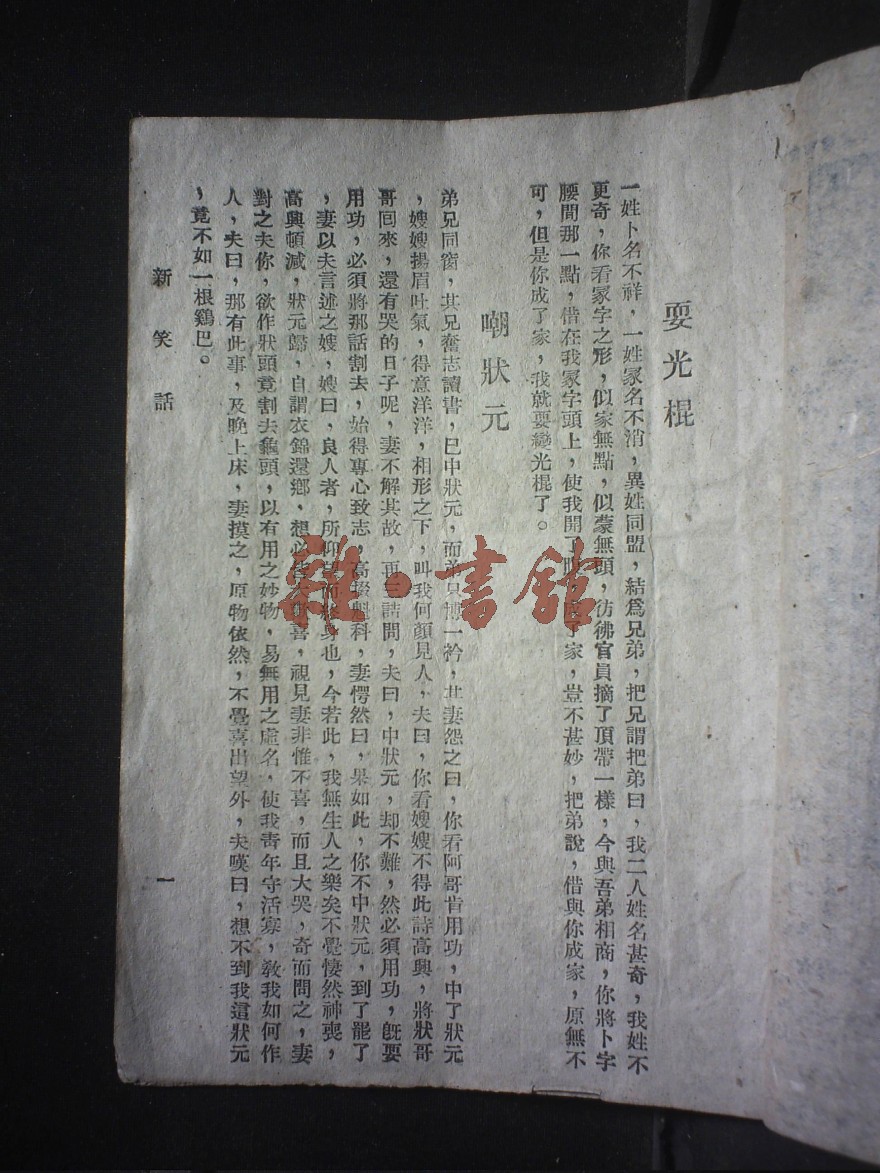 耍光棍
一姓卜名不祥，一姓冡名不消，異姓同盟，結爲兄弟，把兄謂把弟曰，我二人姓名甚奇，我姓不
更奇，你看冡字之形，似家無點，似蒙無頭，彷彿官員摘了頂帶一樣，今與吾弟相商，你將卜字
腰間那一點，借在我冡字頭上，使我開了家，豈不甚妙，把弟說，借與你成家，原無不
可，但是你成了家，我就要變光棍了。
嘲狀元
弟兄同窗，其兄奮志讀書，已中狀元，而弟只博一衿，其妻怨之曰，你看阿哥肯用功，中了狀元
，嫂嫂揚眉吐氣，得意洋洋，相形之下，叫我何顏見人，夫曰，你看嫂嫂不得此詩高興，將狀哥
哥回來，還有哭的日子呢，妻不解其故，再三詰問，夫曰，中狀元，却不難，然必須用功，旣要
用功，必須將那話割去，始得專心致志，高掇魁科，妻愕然曰，果如此，你不中狀元，到了罷了
，妻以夫言述之嫂，嫂曰，良人者，所仰望而終身也，今若此，我無生人之樂矣不覺悽然神喪，
高興頓減，狀元歸，自謂衣錦還鄉，想必皆大歡喜，視見妻非惟不喜，而且大哭，奇而問之，妻
對之夫你，欲作狀頭竟割去龜頭，以有用之妙物，易無用之虛名，使我靑年守活寡，敎我如何作
人，夫曰，那有此事，及晚上床，妻摸之，原物依然，不覺喜出望外，夫嘆曰，想不到我這狀元
，竟不如一根鷄巴。
新笑話
一
雜·書館